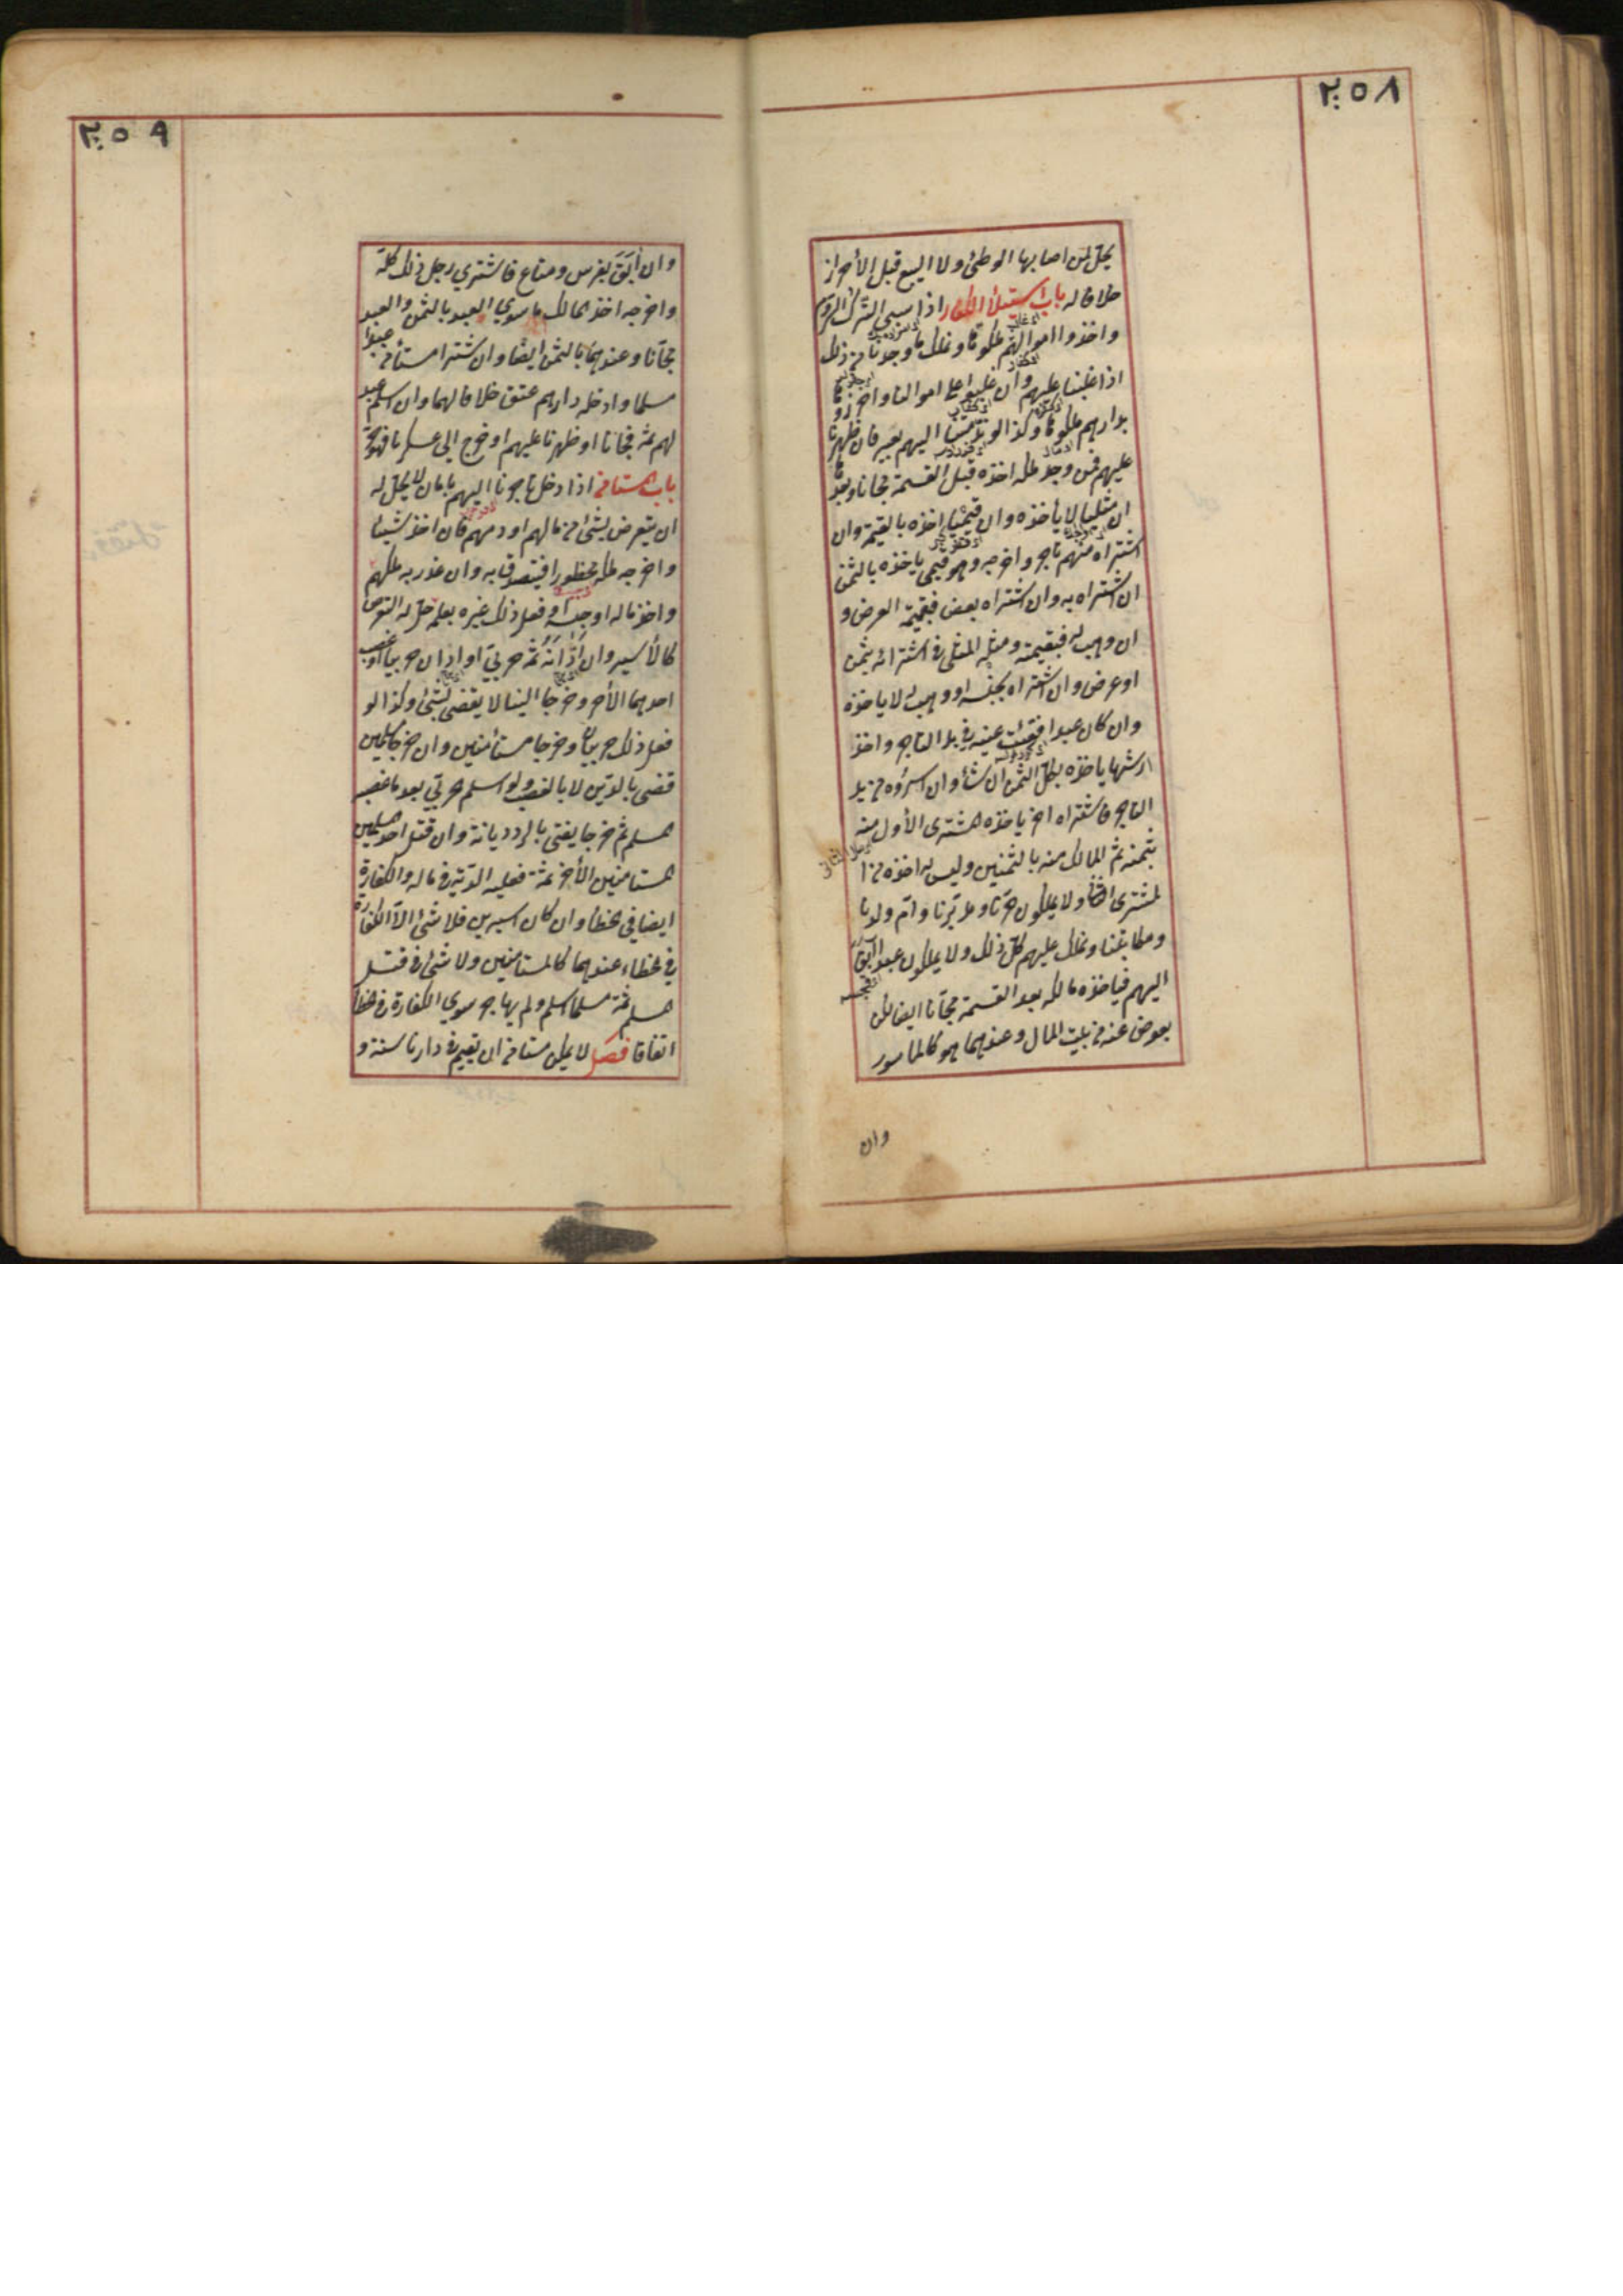 ٢٥٨
يحل لمن اصابها الوطئ ولا البيع قبل الأحراز
خلافا له باب استيلأ الكفار اذا سبى الترك الروم
واخذوا اموالهم ملكوها ونملك ما وجدنا من ذلك
اذا غلبنا عليهم وان غلبوا على اموالنا واحرزوها
بدارهم ملكوها وكذا لو ند منا اليهم بعير فان ظهرنا
عليهم فمن وجد ملكه اخذه قبل القسمة مجانا وبعدها
ان مثليا لا يأخذه وان قيميا اخذه بالقيمة وان
اشتراه منهم تاجر واخرجه وهو قيمى ياخذه بالثمن
ان اشتراه به وان اشتراه بعرض فبقيمة العرض و
ان وهب له فبقيمته ومثله المثلى فى اشترائه بثمن
او عرض وان اشتراه بجنسه او وهب له لا ياخذه
وان كان عبدا ففقئت عينه فى يد التاجر واخذ
ارشها ياخذه بكل الثمن ان شأ وان اسروه من يد
التاجر فاشتراه اخر ياخذه المشترى الأول منه
بثمنه ثم المالك منه بالثمنين وليس له اخذه من ا
لمشترى الثانى ولا يملكون حرنا ومدبرنا وام ولدنا
ومكاتبنا ونملك عليهم كل ذلك ولا يملكون عبدا ابق
اليهم فياخذه مالكه بعد القسمة مجانا ايضا لكن
يعوض عنه من بيت المال وعندهما هو كالمأسور
وان
٢٥٩
وان أبق بفرس ومتاع فاشترى رجل ذلك كله
واخرجه اخذ المالك ما سوى العبد بالثمن والعبد
مجانا وعندهما بالثمن ايضا وان اشترا مستأمن عبدا
مسلما وادخله دارهم عتق خلافا لهما وان اسلم عبد
لهم ثمه فجانا او ظهرنا عليهم او خرج الى عسكرنا فهو حر
باب المستامن اذا دخل تاجرنا اليهم بامان لا يحل له
ان يتعرض لشئ من مالهم او دمهم فان اخذ شيئا
واخرجه ملكه محظورا فيتصدق به وان غدر به ملكهم
واخذ ماله او حبسه او فعل ذلك غيره بعلمه حل له التعرض
كالأسير وان أدانه ثمه حربى او ادان حربيا او غصب
احدهما الأخر وخرجا الينا لا يقضى بشئ وكذا لو
فعل ذلك حربيان وخرجا مستأمنين وان خرجا مسلمين
قضى بالدين لا بالغصب ولو اسلم حربى بعد ما غصبه
مسلم ثم خرجا يفتى بالرد ديانة وان قتل احد المسلمين
المستامنين الأخر ثمه فعليه الدية فى ماله والكفارة
ايضا فى الخطأ وان كان اسيرين فلا شئ الا الكفارة
فى الخطاء عندهما كالمستامنين ولا شئ فى قتل
مسلم ثمة مسلما اسلم ولم يهاجر سوى الكفارة فى الخطأ
اتفاقا فصل لا يمكن مستامن ان يقيم فى دارنا سنة و